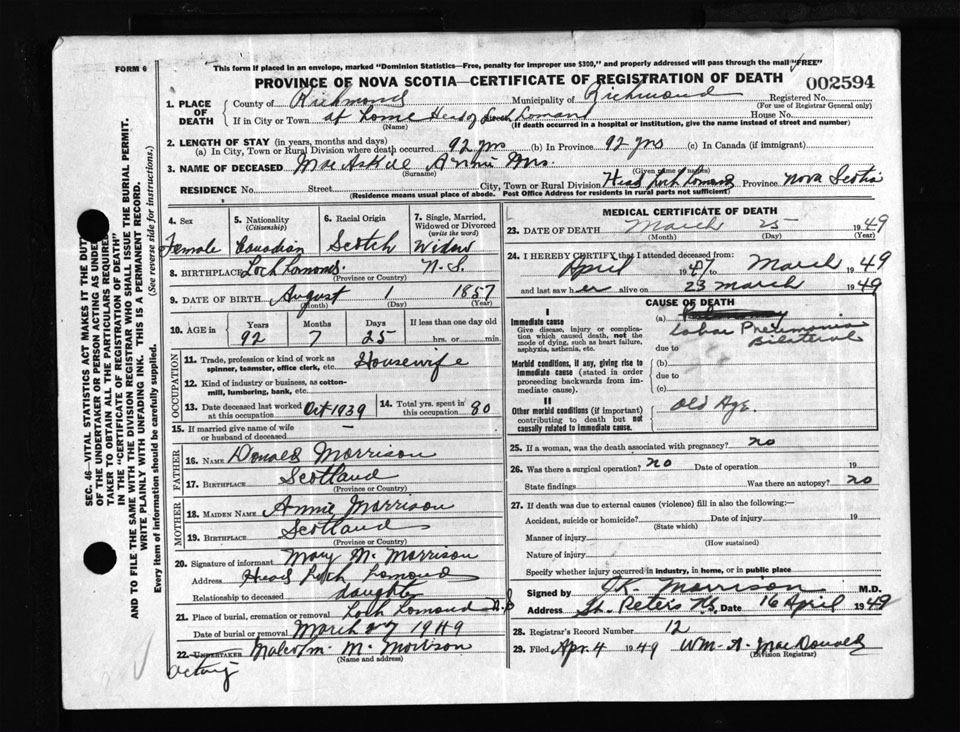 FORM 6
This form if placed in an envelope, marked "Dominion Statistics—Free, penalty for improper use $300," and properly addressed will pass through the mail "FREE"
PROVINCE OF NOVA SCOTIA—CERTIFICATE OF REGISTRATION OF DEATH
002594
1. PLACE OF DEATH
County of Richmond Municipality of Richmond Registered No.
(For use of Registrar General only)
If in City or Town at home Head of Loch Lomond House No.
(Name) (If death occurred in a hospital or institution, give the name instead of street and number)
2. LENGTH OF STAY (in years, months and days)
(a) In City, Town or Rural Division where death occurred 92 yrs (b) In Province 92 yrs (c) In Canada (if immigrant)
3. NAME OF DECEASED MacAskill Annie Mrs.
(Surname) (Given name or names)
RESIDENCE No. Street City, Town or Rural Division Head Loch Lomond Province Nova Scotia
(Residence means usual place of abode. Post Office Address for residents in rural parts not sufficient)
4. Sex
Female
5. Nationality
(Citizenship)
Canadian
6. Racial Origin
Scotch
7. Single, Married, Widowed or Divorced
(write the word)
Widow
8. BIRTHPLACE Loch Lomond N.S.
(Province or Country)
9. DATE OF BIRTH August 1 1857
(Month) (Day) (Year)
10. AGE in
Years Months Days If less than one day old
92 7 25 hrs. or min.
OCCUPATION
11. Trade, profession or kind of work as spinner, teamster, office clerk, etc. Housewife
12. Kind of industry or business, as cotton-mill, lumbering, bank, etc.
13. Date deceased last worked at this occupation Oct 1939
14. Total yrs. spent in this occupation 80
15. If married give name of wife or husband of deceased —
FATHER
16. NAME Donald Morrison
17. BIRTHPLACE Scotland
(Province or Country)
MOTHER
18. MAIDEN NAME Annie Morrison
19. BIRTHPLACE Scotland
(Province or Country)
20. Signature of informant Mary M. Morrison
Address Head Loch Lomond
Relationship to deceased daughter
21. Place of burial, cremation or removal Loch Lomond N.S
Date of burial or removal March 27 1949
22. UNDERTAKER Malcolm M. Morrison
(Name and address)
acting
MEDICAL CERTIFICATE OF DEATH
23. DATE OF DEATH March 25 1949
(Month) (Day) (Year)
24. I HEREBY CERTIFY that I attended deceased from:
April 1947 to March 1949
and last saw her alive on 23 March 1949
CAUSE OF DEATH
I
Immediate cause
Give disease, injury or complication which caused death, not the mode of dying, such as heart failure, asphyxia, asthenia, etc.
(a)
Lobar Pneumonia
Bilateral
due to
Morbid conditions, if any, giving rise to immediate cause (stated in order proceeding backwards from immediate cause).
(b)
due to
(c)
II
Other morbid conditions (if important) contributing to death but not causally related to immediate cause.
Old Age.
25. If a woman, was the death associated with pregnancy? no
26. Was there a surgical operation? no Date of operation 19
State findings Was there an autopsy? no
27. If death was due to external causes (violence) fill in also the following:—
Accident, suicide or homicide? Date of injury 19
(State which)
Manner of injury
(How sustained)
Nature of injury
Specify whether injury occurred in industry, in home, or in public place
Signed by J.K. Morrison M.D.
Address St. Peters N.S. Date 16 April 1949
28. Registrar's Record Number 12
29. Filed Apr. 4 1949 Wm. A. MacDonald
(Division Registrar)
SEC. 46—VITAL STATISTICS ACT MAKES IT THE DUTY
OF THE UNDERTAKER OR PERSON ACTING AS UNDER-
TAKER TO OBTAIN ALL THE PARTICULARS REQUIRED
IN THE "CERTIFICATE OF REGISTRATION OF DEATH"
AND TO FILE THE SAME WITH THE DIVISION REGISTRAR WHO SHALL ISSUE THE BURIAL PERMIT.
WRITE PLAINLY WITH UNFADING INK. THIS IS A PERMANENT RECORD.
Every item of information should be carefully supplied. (See reverse side for instructions.)